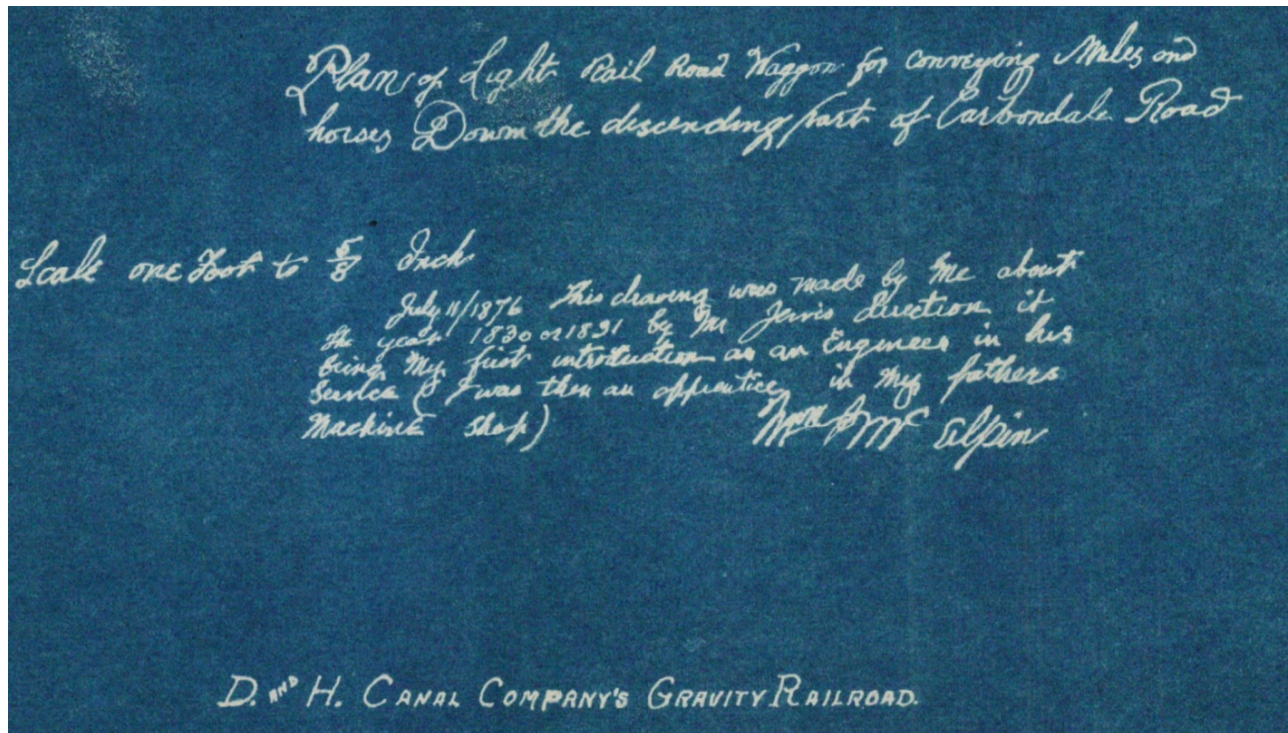 Plan of Light Rail Road Waggon for conveying Mules and
horses Down the descending part of Carbondale Road
Scale one Foot to 5/8 Inch
July 11/1876 This drawing was made by Me about
the year 1830 or 1831 by Mr Jervis direction it
being My first introduction as an Engineer in his
Service (I was then an apprentice in My fathers
Machine Shop)
Wm J Mc Alpin
D. AND H. CANAL COMPANY'S GRAVITY RAILROAD.